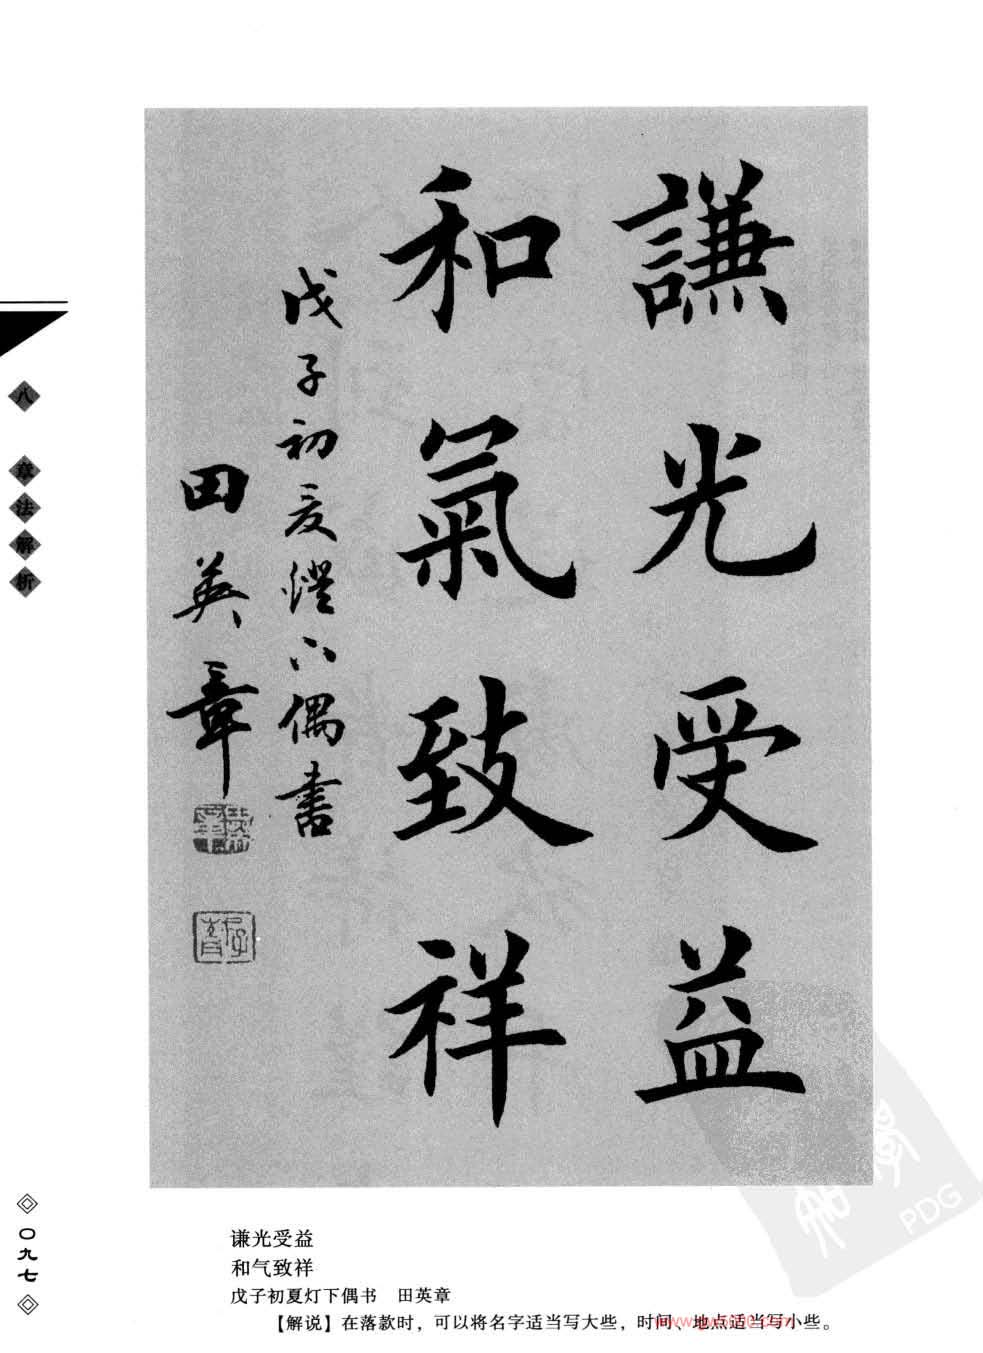 謙光受益
和氣致祥
戊子初夏燈下偶書
田英章
八 章法解析
〇九七
谦光受益
和气致祥
戊子初夏灯下偶书 田英章
【解说】在落款时，可以将名字适当写大些，时间、地点适当写小些。
PDG